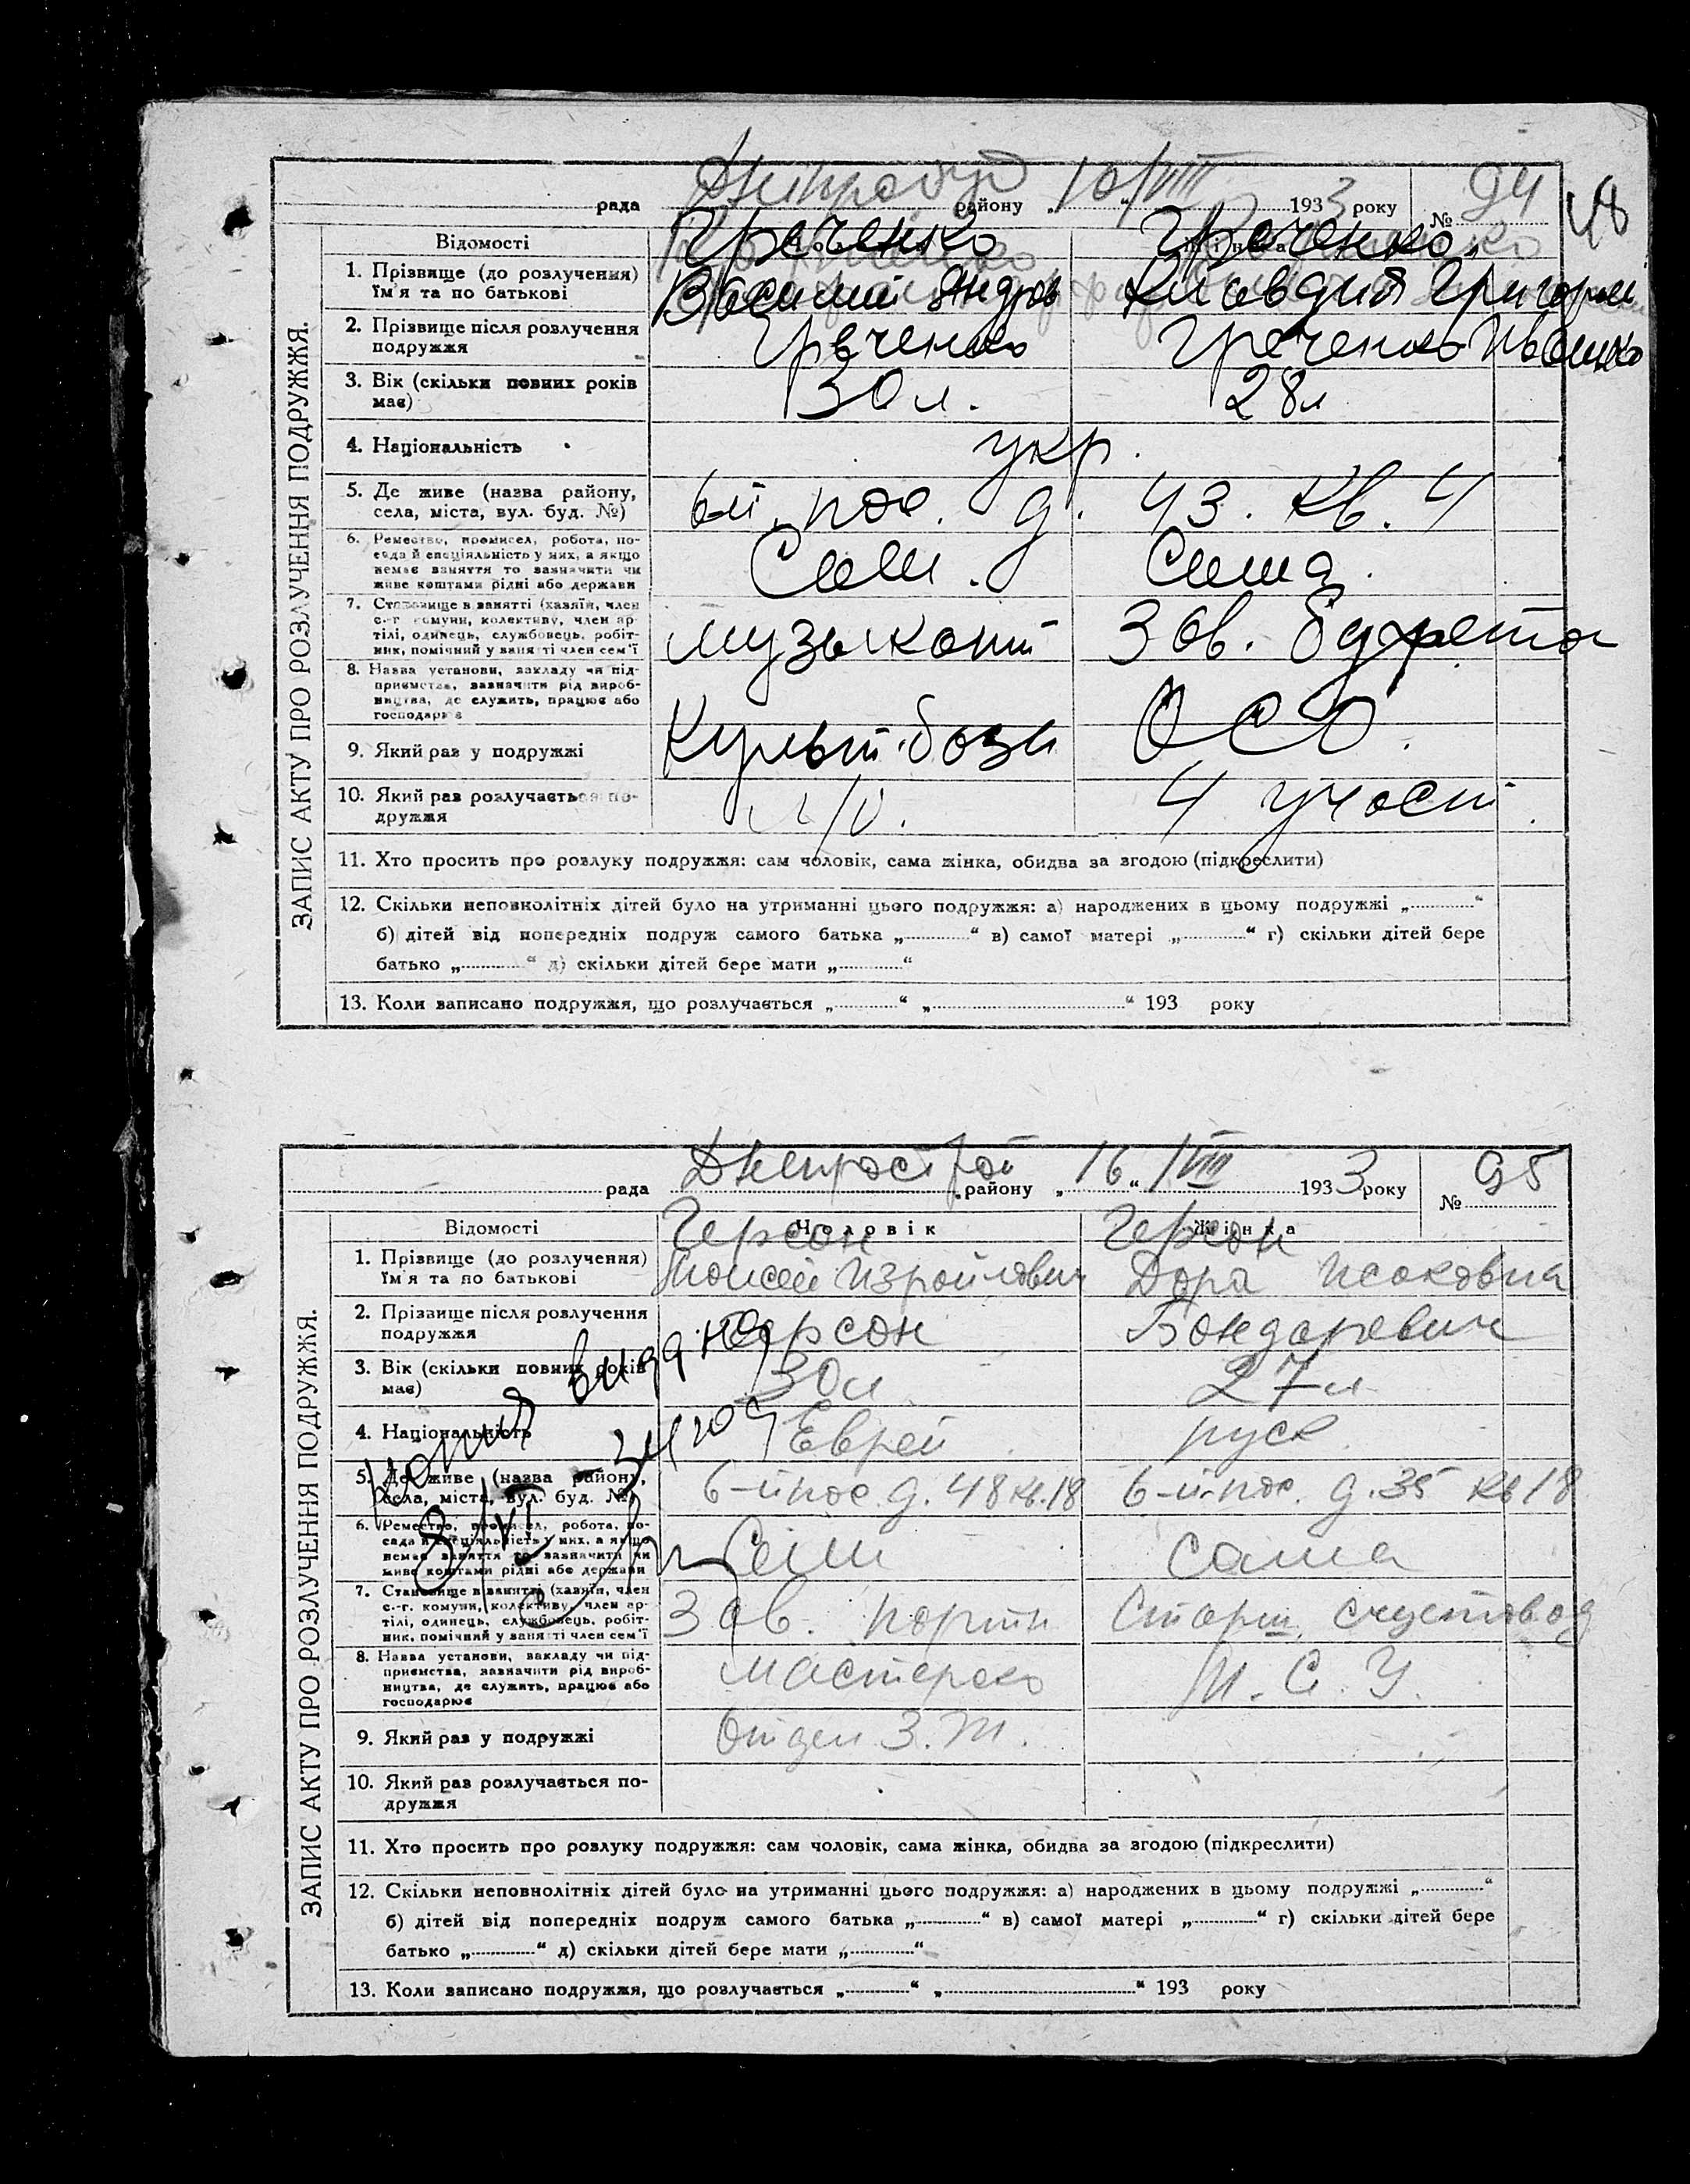 48
ЗАПИС АКТУ ПРО РОЗЛУЧЕННЯ ПОДРУЖЖЯ.
рада району „10/VIII 1933 року № 94
Відомості Чоловік Жінка
Греченко Греченко
1. Прізвище (до розлучення) їм'я та по батькові
Василий Андров Клавдия Григорьев
2. Прізвище після розлучення подружжя
Гречченко Греченко Ивашко
3. Вік (скільки повних років має)
30 л. 28 л
4. Національність
укр.
5. Де живе (назва району, села, міста, вул. буд. №)
6й. пос. д. 43. кв. 4
6. Ремество, промисел, робота, посада й спеціяльність у них, а якщо немає заняття то зазначити чи живе коштами рідні або держави
Сам. Сама.
7. Становище в занятті (хазяїн, член с.-г. комуни, колективу, член артілі, одинець, службовець, робітник, помічний у занятті член сем'ї
музыкант Зав. буфета
8. Назва установи, закладу чи підприємства, зазначити рід виробництва, де служить, працює або господарює
9. Який раз у подружжі
Культ. базы ОСО.
10. Який раз розлучається подружжя
4 участ.
11. Хто просить про розлуку подружжя: сам чоловік, сама жінка, обидва за згодою (підкреслити)
12. Скільки неповнолітніх дітей було на утриманні цього подружжя: а) народжених в цьому подружжі „............“
б) дітей від попередніх подруж самого батька „............“ в) самої матері „............“ г) скільки дітей бере
батько „............“ д) скільки дітей бере мати „............“
13. Коли записано подружжя, що розлучається „............“ „............“ 193 року
ЗАПИС АКТУ ПРО РОЗЛУЧЕННЯ ПОДРУЖЖЯ.
рада Днепрострой району „16“ /VIII 1933 року № 95
Відомості Чоловік Жінка
Герсон Герсон
1. Прізвище (до розлучення) їм'я та по батькові
Моисей Израйлович Дора Исаковна
2. Прізвище після розлучення подружжя
Герсон Бондаревич
3. Вік (скільки повних років має)
30 л 27 л
4. Національність
Еврей руск.
5. Де живе (назва району, села, міста, вул. буд. №)
6-й пос. д. 48 кв. 18 6-й пос. д. 35 кв 18
6. Ремество, промисел, робота, посада й спеціяльність у них, а якщо немає заняття то зазначити чи живе коштами рідні або держави
Сам сама
7. Становище в занятті (хазяїн, член с.-г. комуни, колективу, член артілі, одинець, службовець, робітник, помічний у занятті член сем'ї
Зав. портн Старш. счетовод
8. Назва установи, закладу чи підприємства, зазначити рід виробництва, де служить, працює або господарює
мастерско
9. Який раз у подружжі
Отдел З. Т.
10. Який раз розлучається подружжя
копия видана
8/VI
11. Хто просить про розлуку подружжя: сам чоловік, сама жінка, обидва за згодою (підкреслити)
12. Скільки неповнолітніх дітей було на утриманні цього подружжя: а) народжених в цьому подружжі „............“
б) дітей від попередніх подруж самого батька „............“ в) самої матері „............“ г) скільки дітей бере
батько „............“ д) скільки дітей бере мати „............“
13. Коли записано подружжя, що розлучається „............“ „............“ 193 року